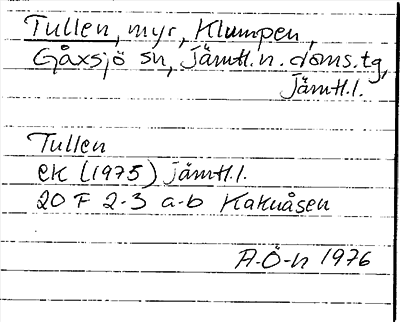 Tullen, myr, Klumpen,
Gåxsjö sn, Jämtl. n. doms. tg,
Jämtl. l.
Tullen
ek (1975) Jämtl. l.
20 F 2-3 a-b Kakuåsen
A-Ö-n 1976